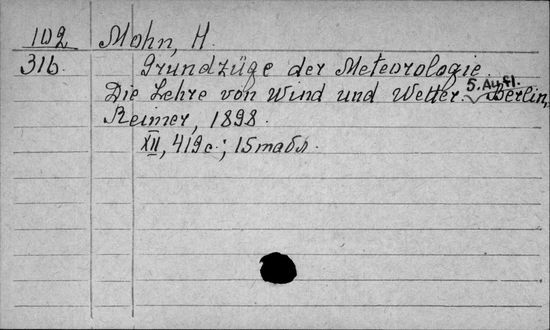 102 Mohn, H.
316. Grundzüge der Meteorologie.
Die Lehre von Wind und Wetter. 5. Aufl. Berlin,
Reimer, 1898.
XII, 419 с.; 15 табл.